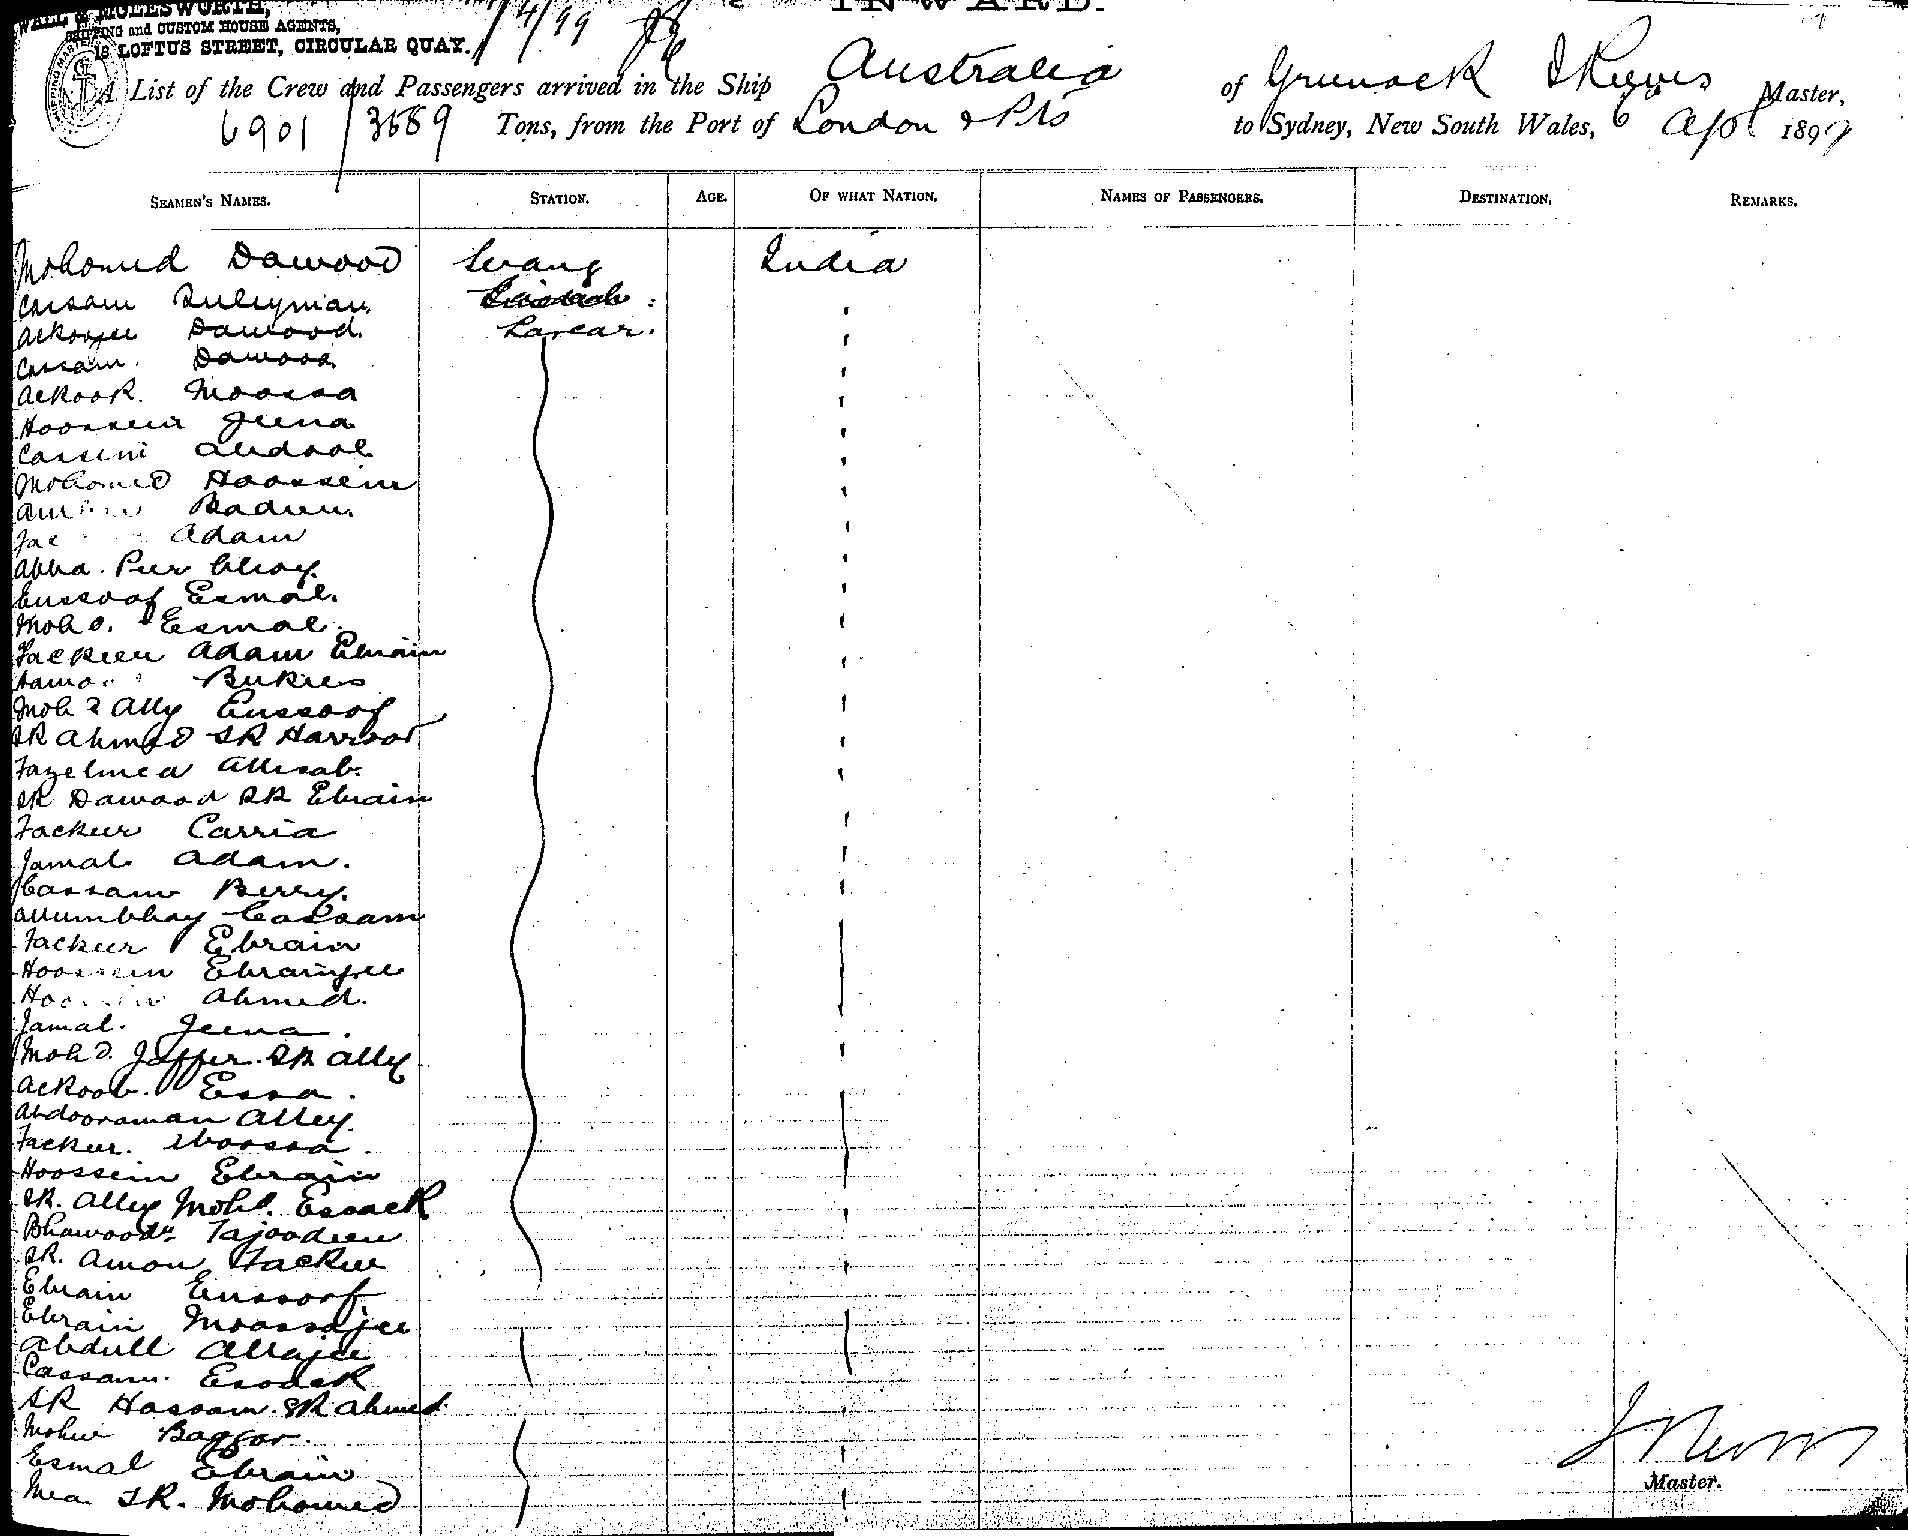 INWARD.
WALL & MOLESWORTH,
SHIPPING and CUSTOM HOUSE AGENTS,
LOFTUS STREET, CIRCULAR QUAY.
/4/99
A List of the Crew and Passengers arrived in the Ship Australia of Greenock Master,
6901 / 3589 Tons, from the Port of London & Pts to Sydney, New South Wales, 6 Apl 1899
SEAMEN'S NAMES. STATION. AGE. OF WHAT NATION. NAMES OF PASSENGERS. DESTINATION. REMARKS.
Mohomed Dawood Serang India
Cassam Suleyman
Ackoojee Dawood Lascar.
Cassam Dawood
Ackoob Moossa
Hoossein Jeena
Cassim Abdool
Mohomed Hoossein
Badun
Adam
Abba Peer bhoy
Eussoof Esmal.
Mohd. Esmal.
Fackeer Adam Ebrain
Bukres
Mohd Ally Eussoof
SK Ahmed SK Harroon
Fazelmea Allisab.
SK Dawood SK Ebrain
Fackeer Carria
Jamal Adam.
Cassam Berry.
Allumbhoy Cassam
Fackeer Ebrain
Hoossein Ebramjee
Hoossein Ahmed.
Jamal. Jeena.
Mohd. Jaffer SK Alley
Ackoob. Essa.
Abdooraman Alley.
Fackeer. Moossa.
Hoossein Ebrain
SK. Alley Mohd. Essack
Tajoodeen
SK. Amon Fackee
Ebrain Eussoof
Ebrain Moossajee
Abdull Allajee
Cassam. Esoack
SK Hassam SK Ahmed
Baggar.
Esmal Ebrain
Mea SK. Mohomed
Master.